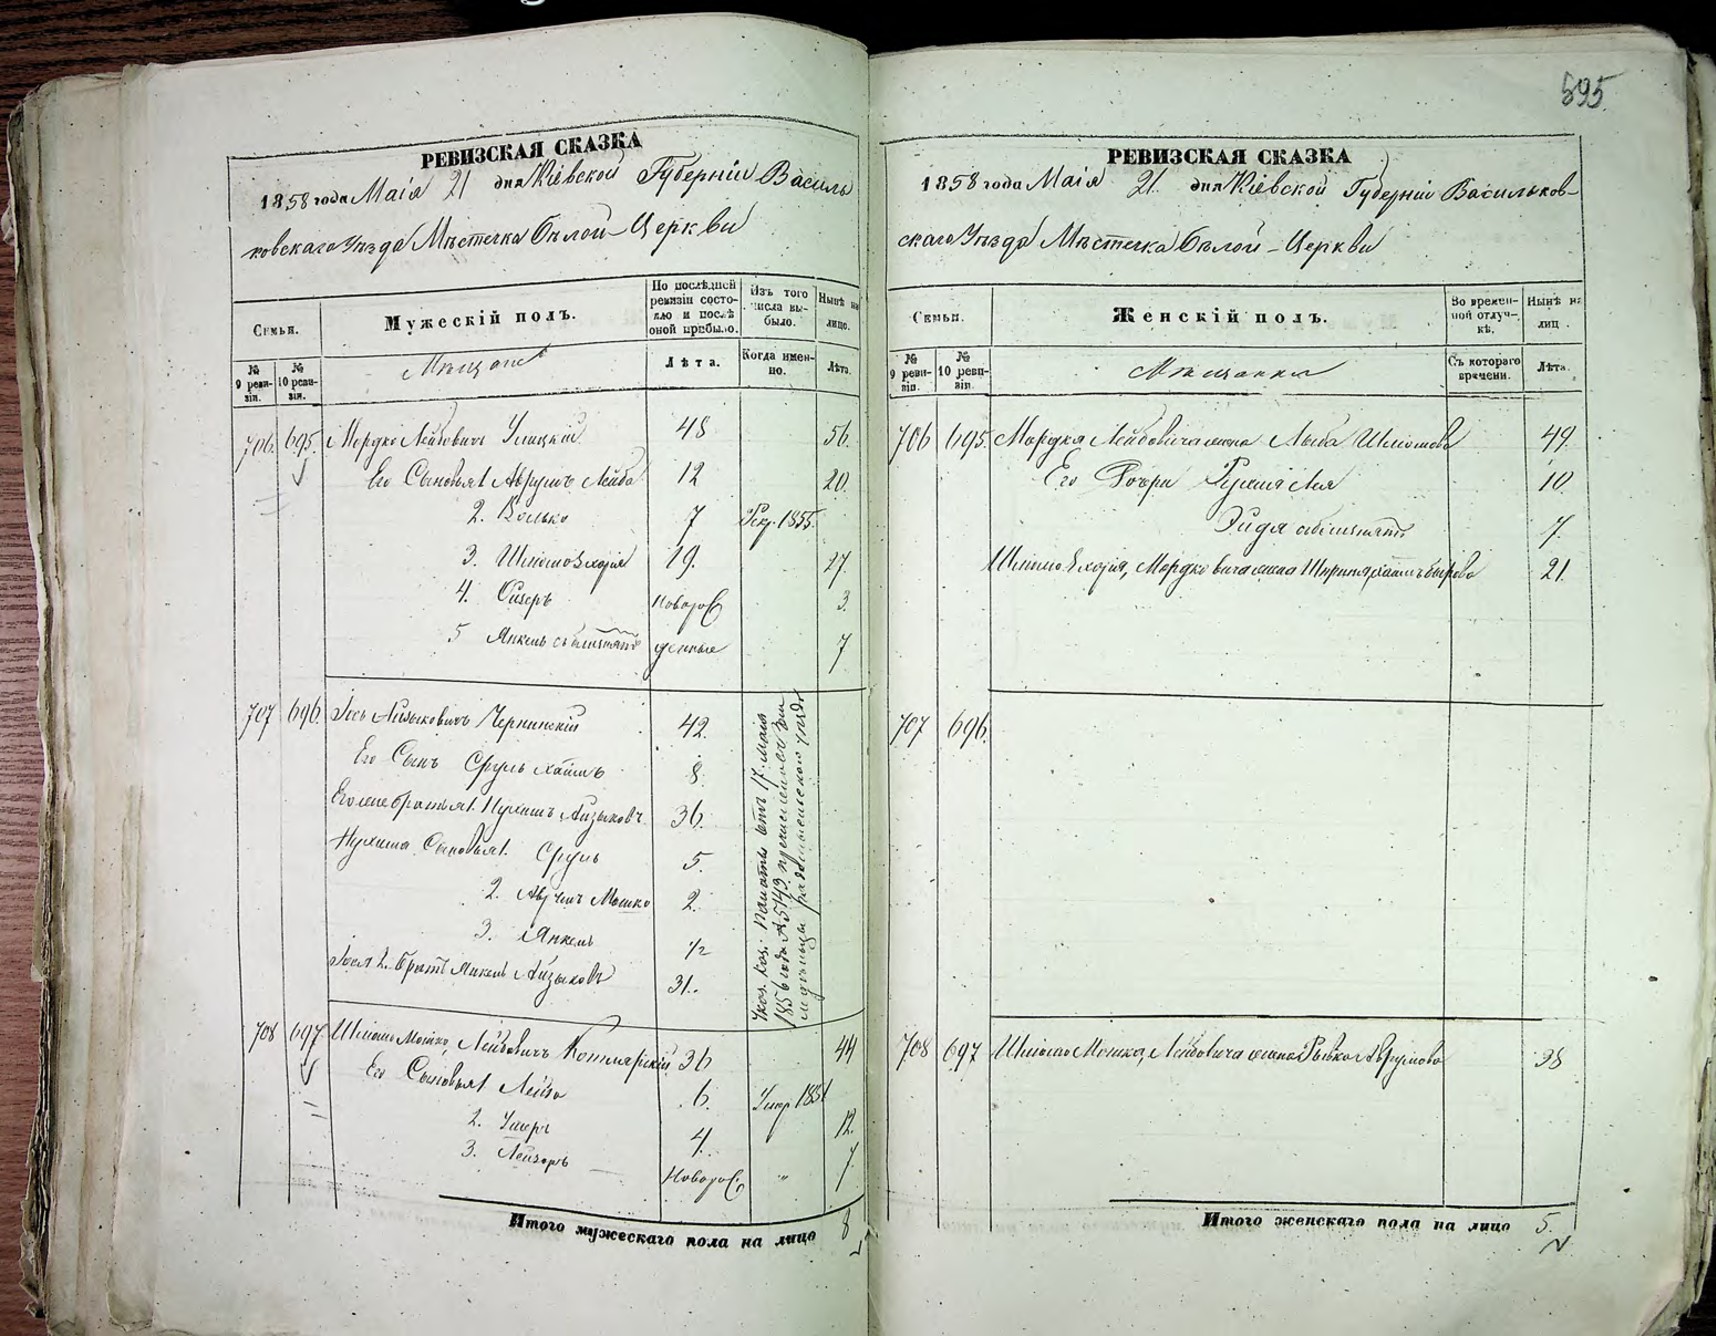 595
РЕВИЗСКАЯ СКАЗКА
1858 года Маія 21 дня Кіевской Губерніи Василь
ковскаго Уѣзда Мѣстечка Бѣлой-Церкви
Семьи.
Мужескій полъ.
По послѣдней ревизіи состояло и послѣ оной прибыло.
Изъ того числа выбыло.
Нынѣ на лицо.
№ 9 ревизіи.
№ 10 ревизіи.
Мѣщане
Лѣта.
Когда именно.
Лѣта.
706. 695. Мордко Лейбовичъ 48 56.
Его Сыновья 1 Аврумъ Лейба 12 20.
2. Волько 7 1855.
3. Шлiомо 19. 27
4. Новорож 3.
5 Янкель денные 7
707 696. Іось Айзыковичъ 42.
Его Сынъ Сруль Хаимъ 8.
братья 1. Нухимъ Айзыковъ 36.
Нухима Сыновья 1. Сруль 5.
2. Аврумъ Мошко 2.
3. Янкель ½
2. Братъ Айзыковъ 31.
Каз. Палаты отъ 17 Маія
1856 года № 5743
708 697. Шліома Мошко Лейбовичъ Котлярскій 36 44
Его Сыновья 1 Лейба 6. Умер 1851
2. Ушеръ 4. 12.
3. Лейзоръ Новорож. " 7
Итого мужескаго пола на лицо 8
РЕВИЗСКАЯ СКАЗКА
1858 года Маія 21. дня Кіевской Губерніи Васильков-
скаго Уѣзда Мѣстечка Бѣлой-Церкви
Семьи.
Женскій полъ.
Во временной отлучкѣ.
Нынѣ на лицо.
№ 9 ревизіи.
№ 10 ревизіи.
Мѣщанки
Съ котораго времени.
Лѣта.
706 695. Мордка Лейбовича жена Шліомова 49.
Его Дочери Лея 10
7.
Мордковича жена 21.
707 696.
708 697 Шліомо Мошка Лейбовича жена Рывка Аврумова 38
Итого женскаго пола на лицо 5.